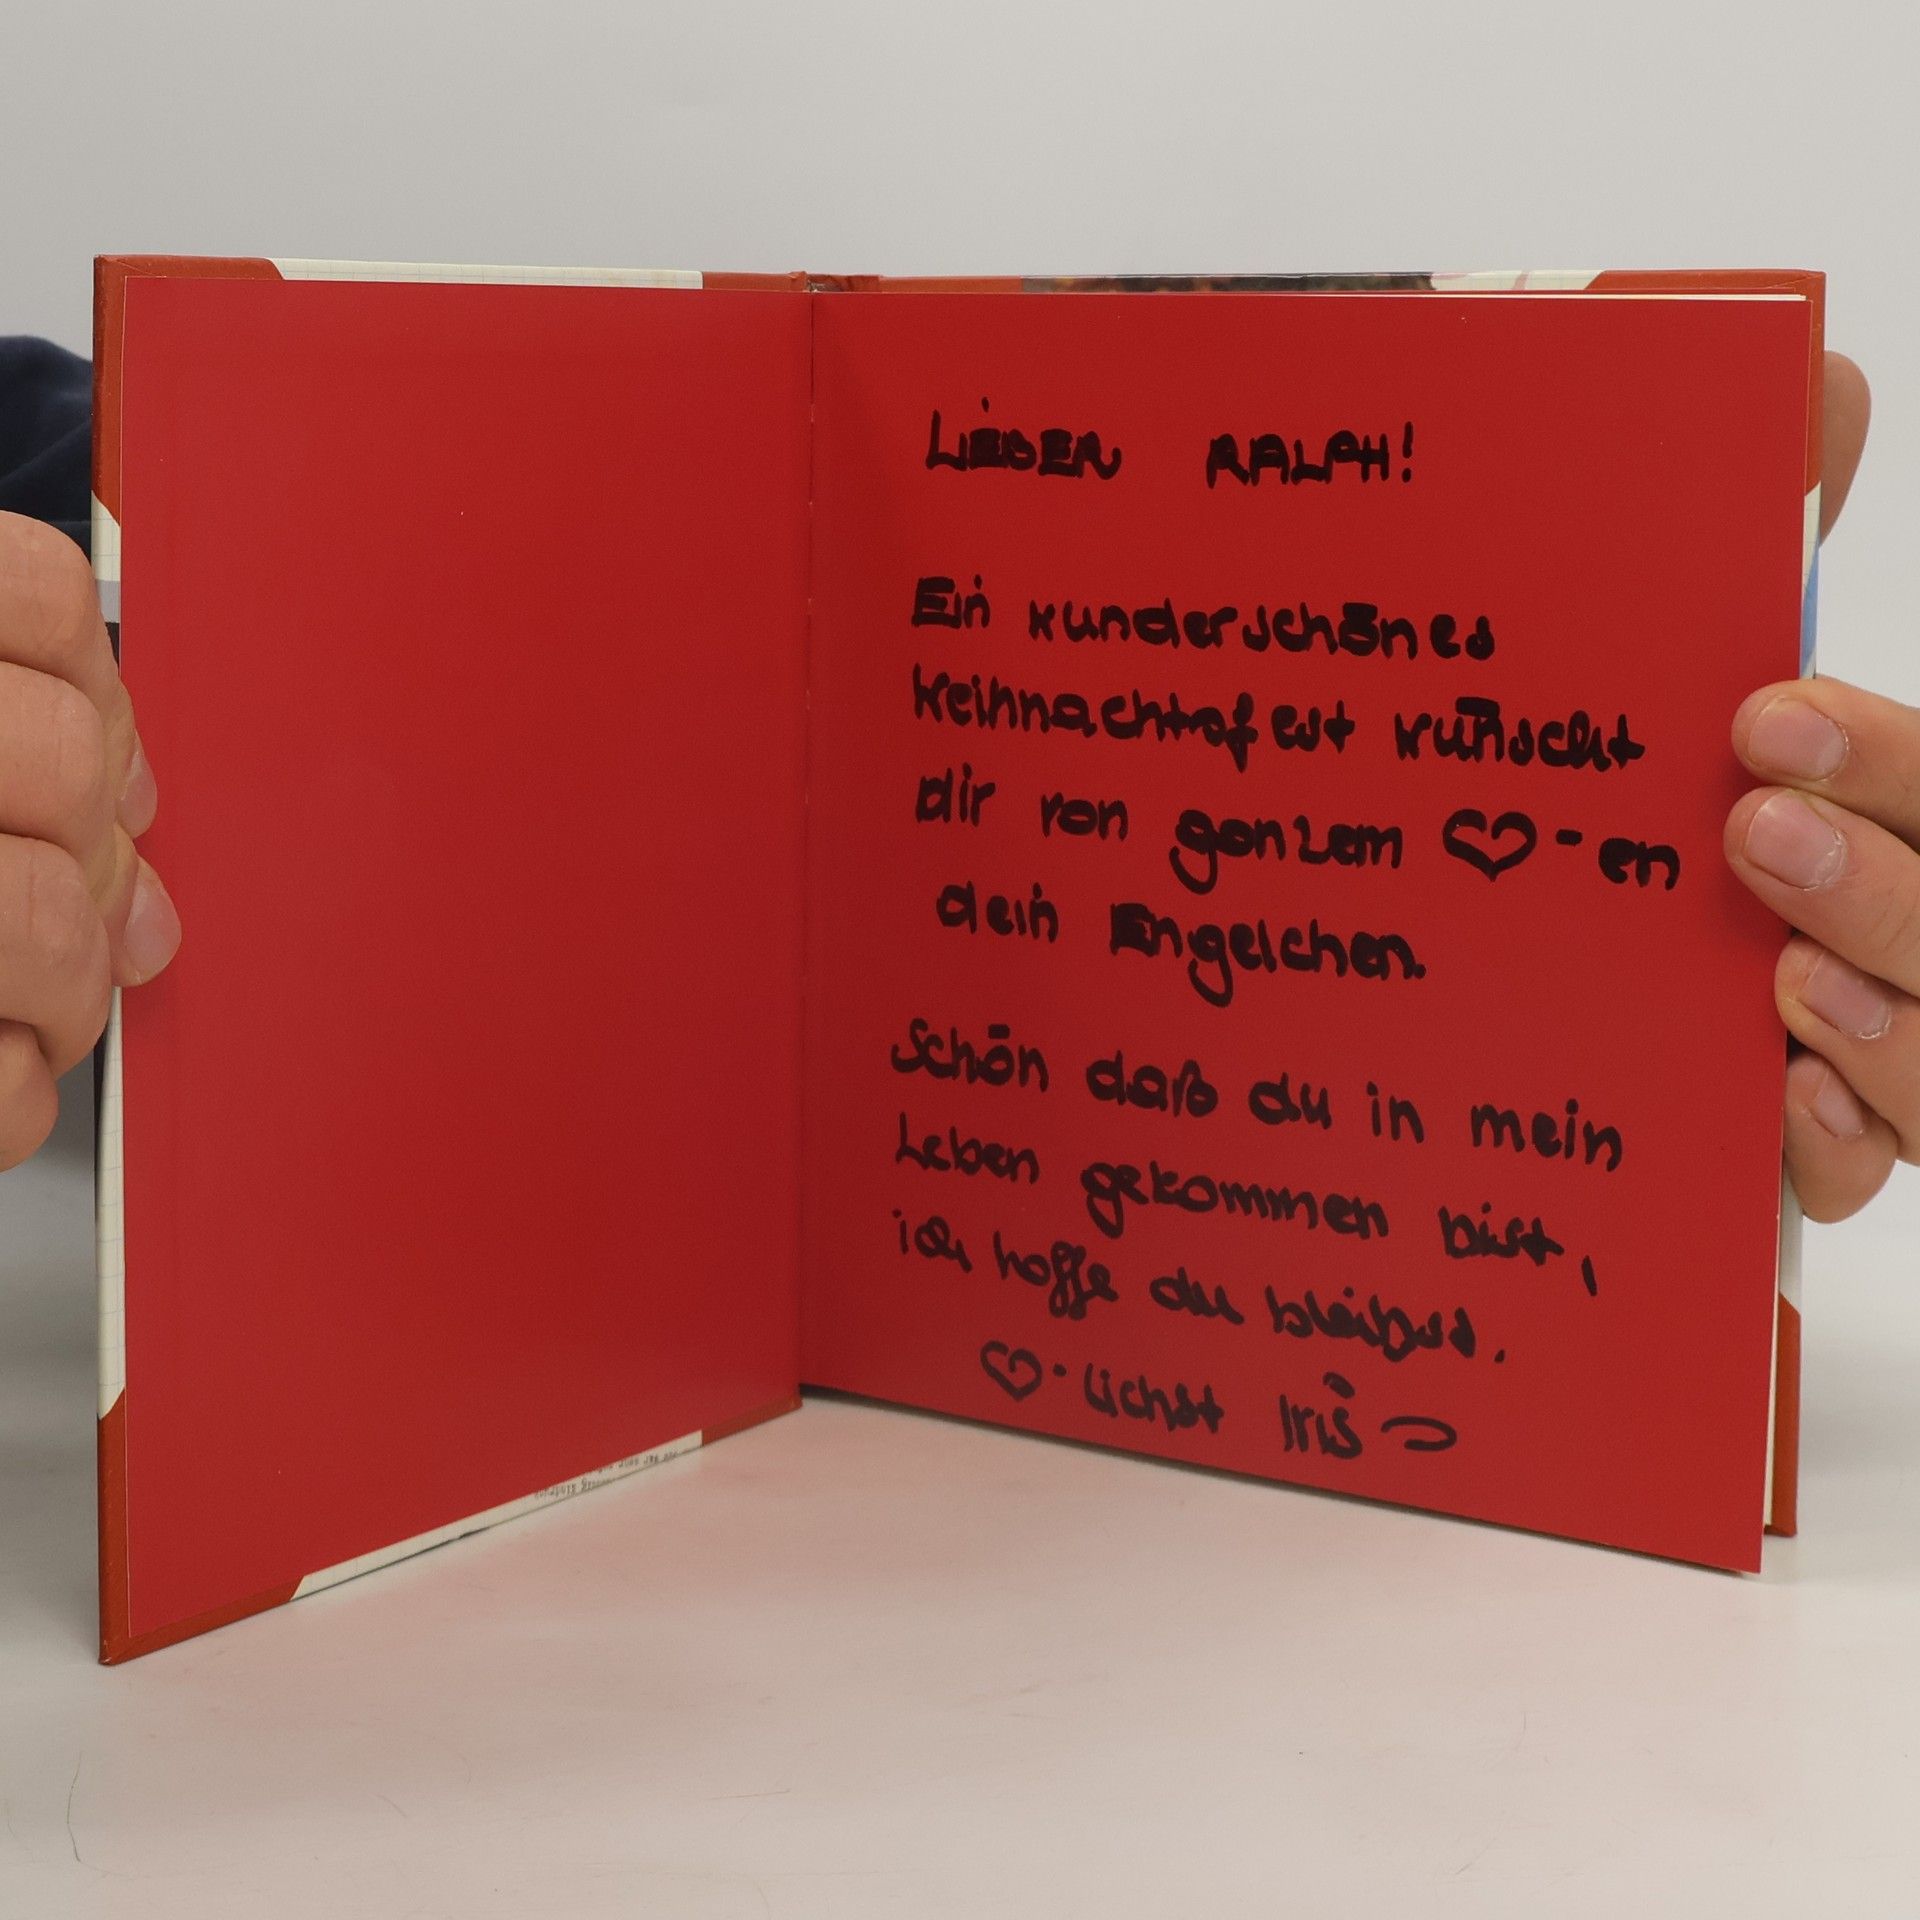 LIEBER RALPH!
Ein wunderschönes
Weihnachtsfest wünscht
dir von ganzem ♡-en
dein Engelchen.
Schön daß du in mein
Leben gekommen bist,
ich hoffe du bleibst.
♡-lichst Iris